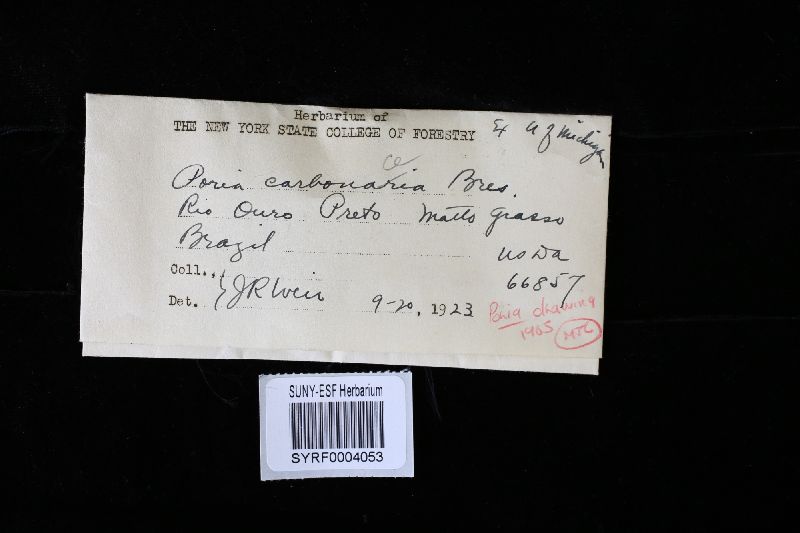 Herbarium of
THE NEW YORK STATE COLLEGE OF FORESTRY
Ex U of Michigan
ce
Poria carbonaria Bres.
Rio Ouro Preto Matto Grasso
Brazil
USDA
Coll.,
66857
Det. JRWeir 9-20, 1923
Poria drawing
1905 MJL
SUNY-ESF Herbarium
SYRF0004053